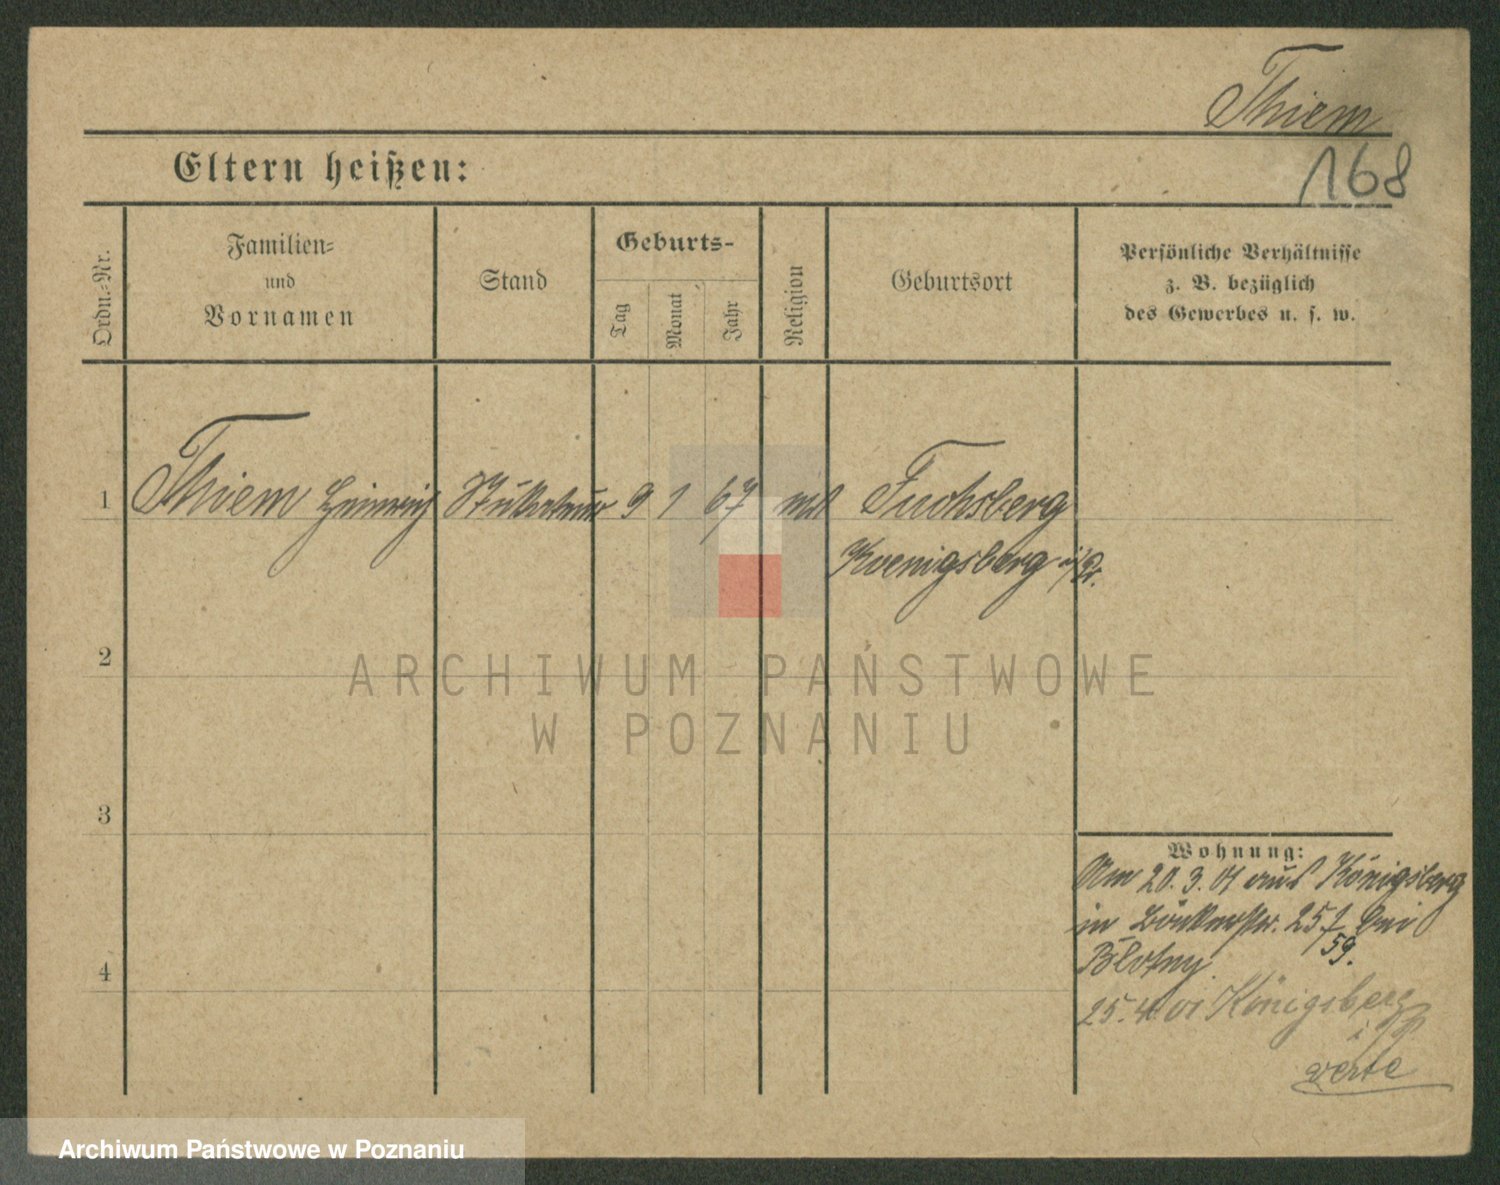 Thiem
Eltern heißen:
168
Ordn.-Nr.
Familien-
und
Vornamen
Stand
Geburts-
Tag
Monat
Jahr
Religion
Geburtsort
Persönliche Verhältnisse
z. B. bezüglich
des Gewerbes u. s. w.
1
Thiem Heinrich Stukateur 9 1 67 Fuchsberg
Koenigsberg i/Pr.
2
ARCHIWUM PAŃSTWOWE
W POZNANIU
3
Wohnung:
Am 20.3.01 aus Königsberg
in 25 bei
59.
4
25.4.01 Königsberg
i/Pr
Archiwum Państwowe w Poznaniu